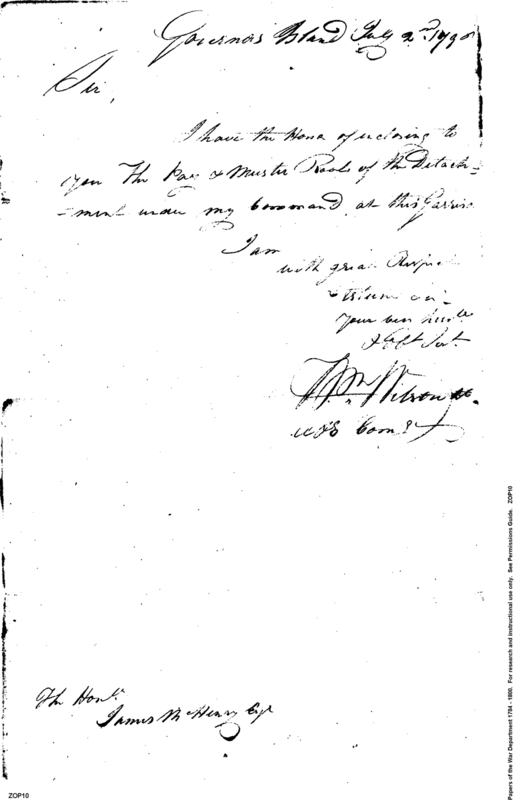 Governors Island July 2nd 1798
Sir,
I have the Honor of enclosing to
you The Pay & Muster Rools of the Detach=
=ment under my Command at this Garriso
I am
with great Respect
Your
& Obt Sert
Wm Wilson Lt.
Comg
The Honle
James McHenry Esqr
ZOP10
Papers of the War Department 1784 - 1800. For research and instructional use only. See Permissions Guide. ZOP10